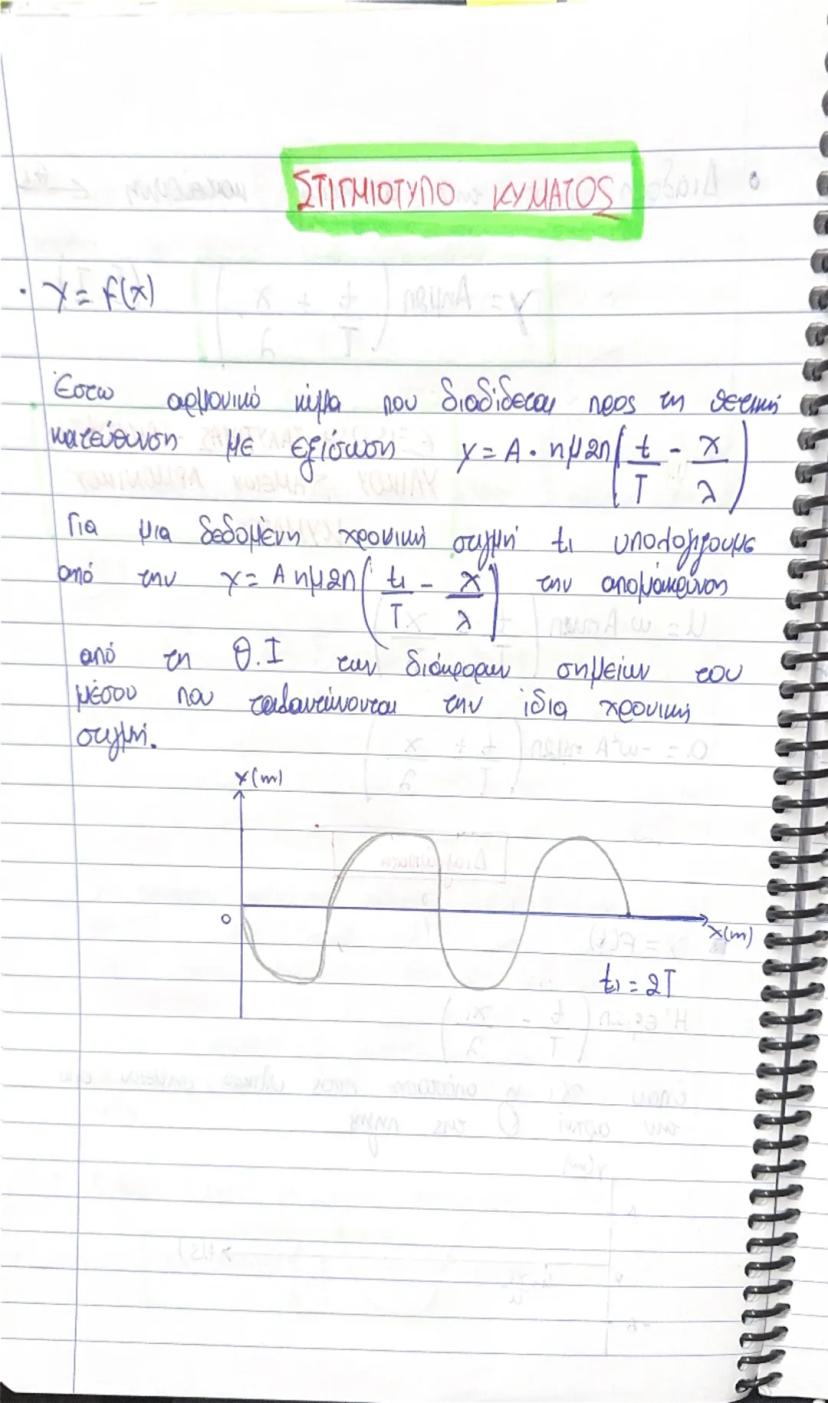 ΣΤΙΓΜΙΟΤΥΠΟ ΚΥΜΑΤΟΣ
• y = f(x)
Έστω αρμονικό κύμα που διαδίδεται προς τη θετική
κατεύθυνση με εξίσωση y = A · ημ2π(t/T - x/λ)
Για μια δεδομένη χρονική στιγμή t₁ υπολογίζουμε
από την y = A ημ2π(t₁/T - x/λ) την απομάκρυνση
από τη Θ.Ι των διάφορων σημείων του
μέσου που ταλαντώνονται την ίδια χρονική
στιγμή.
y(m)
0
x(m)
t₁ = 2T